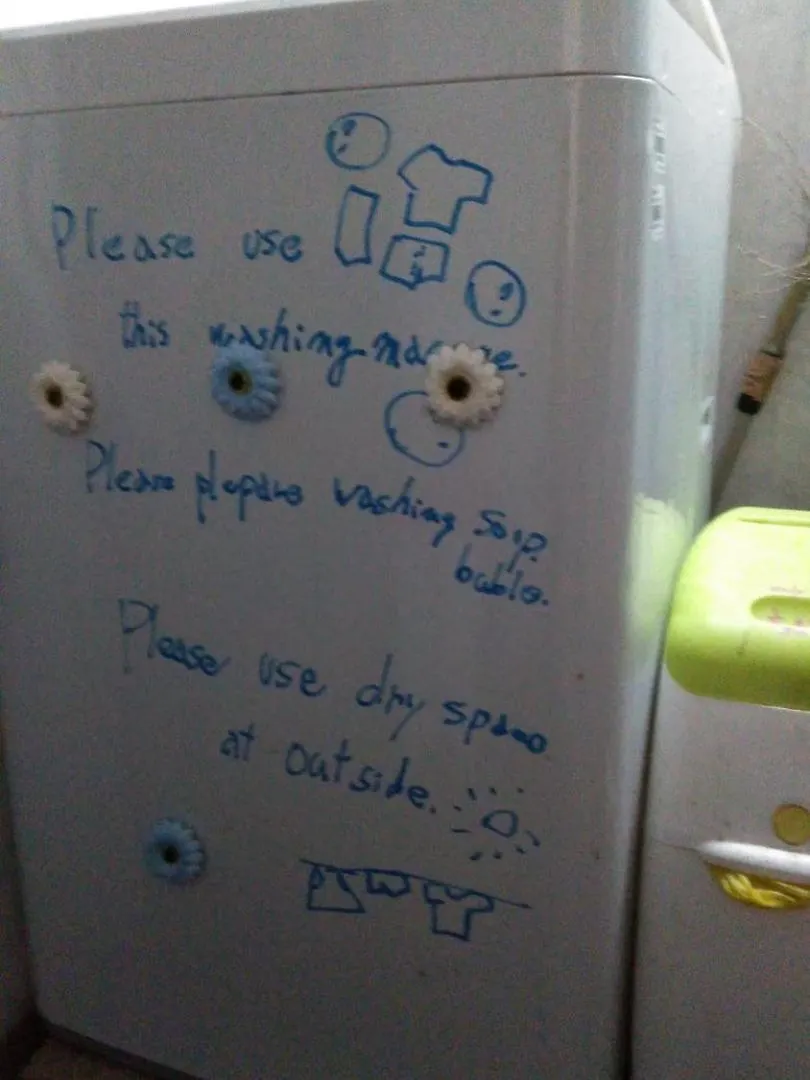 Please use
this washing machine.
Please plepare washing soap
buble.
Please use dry space
at outside.